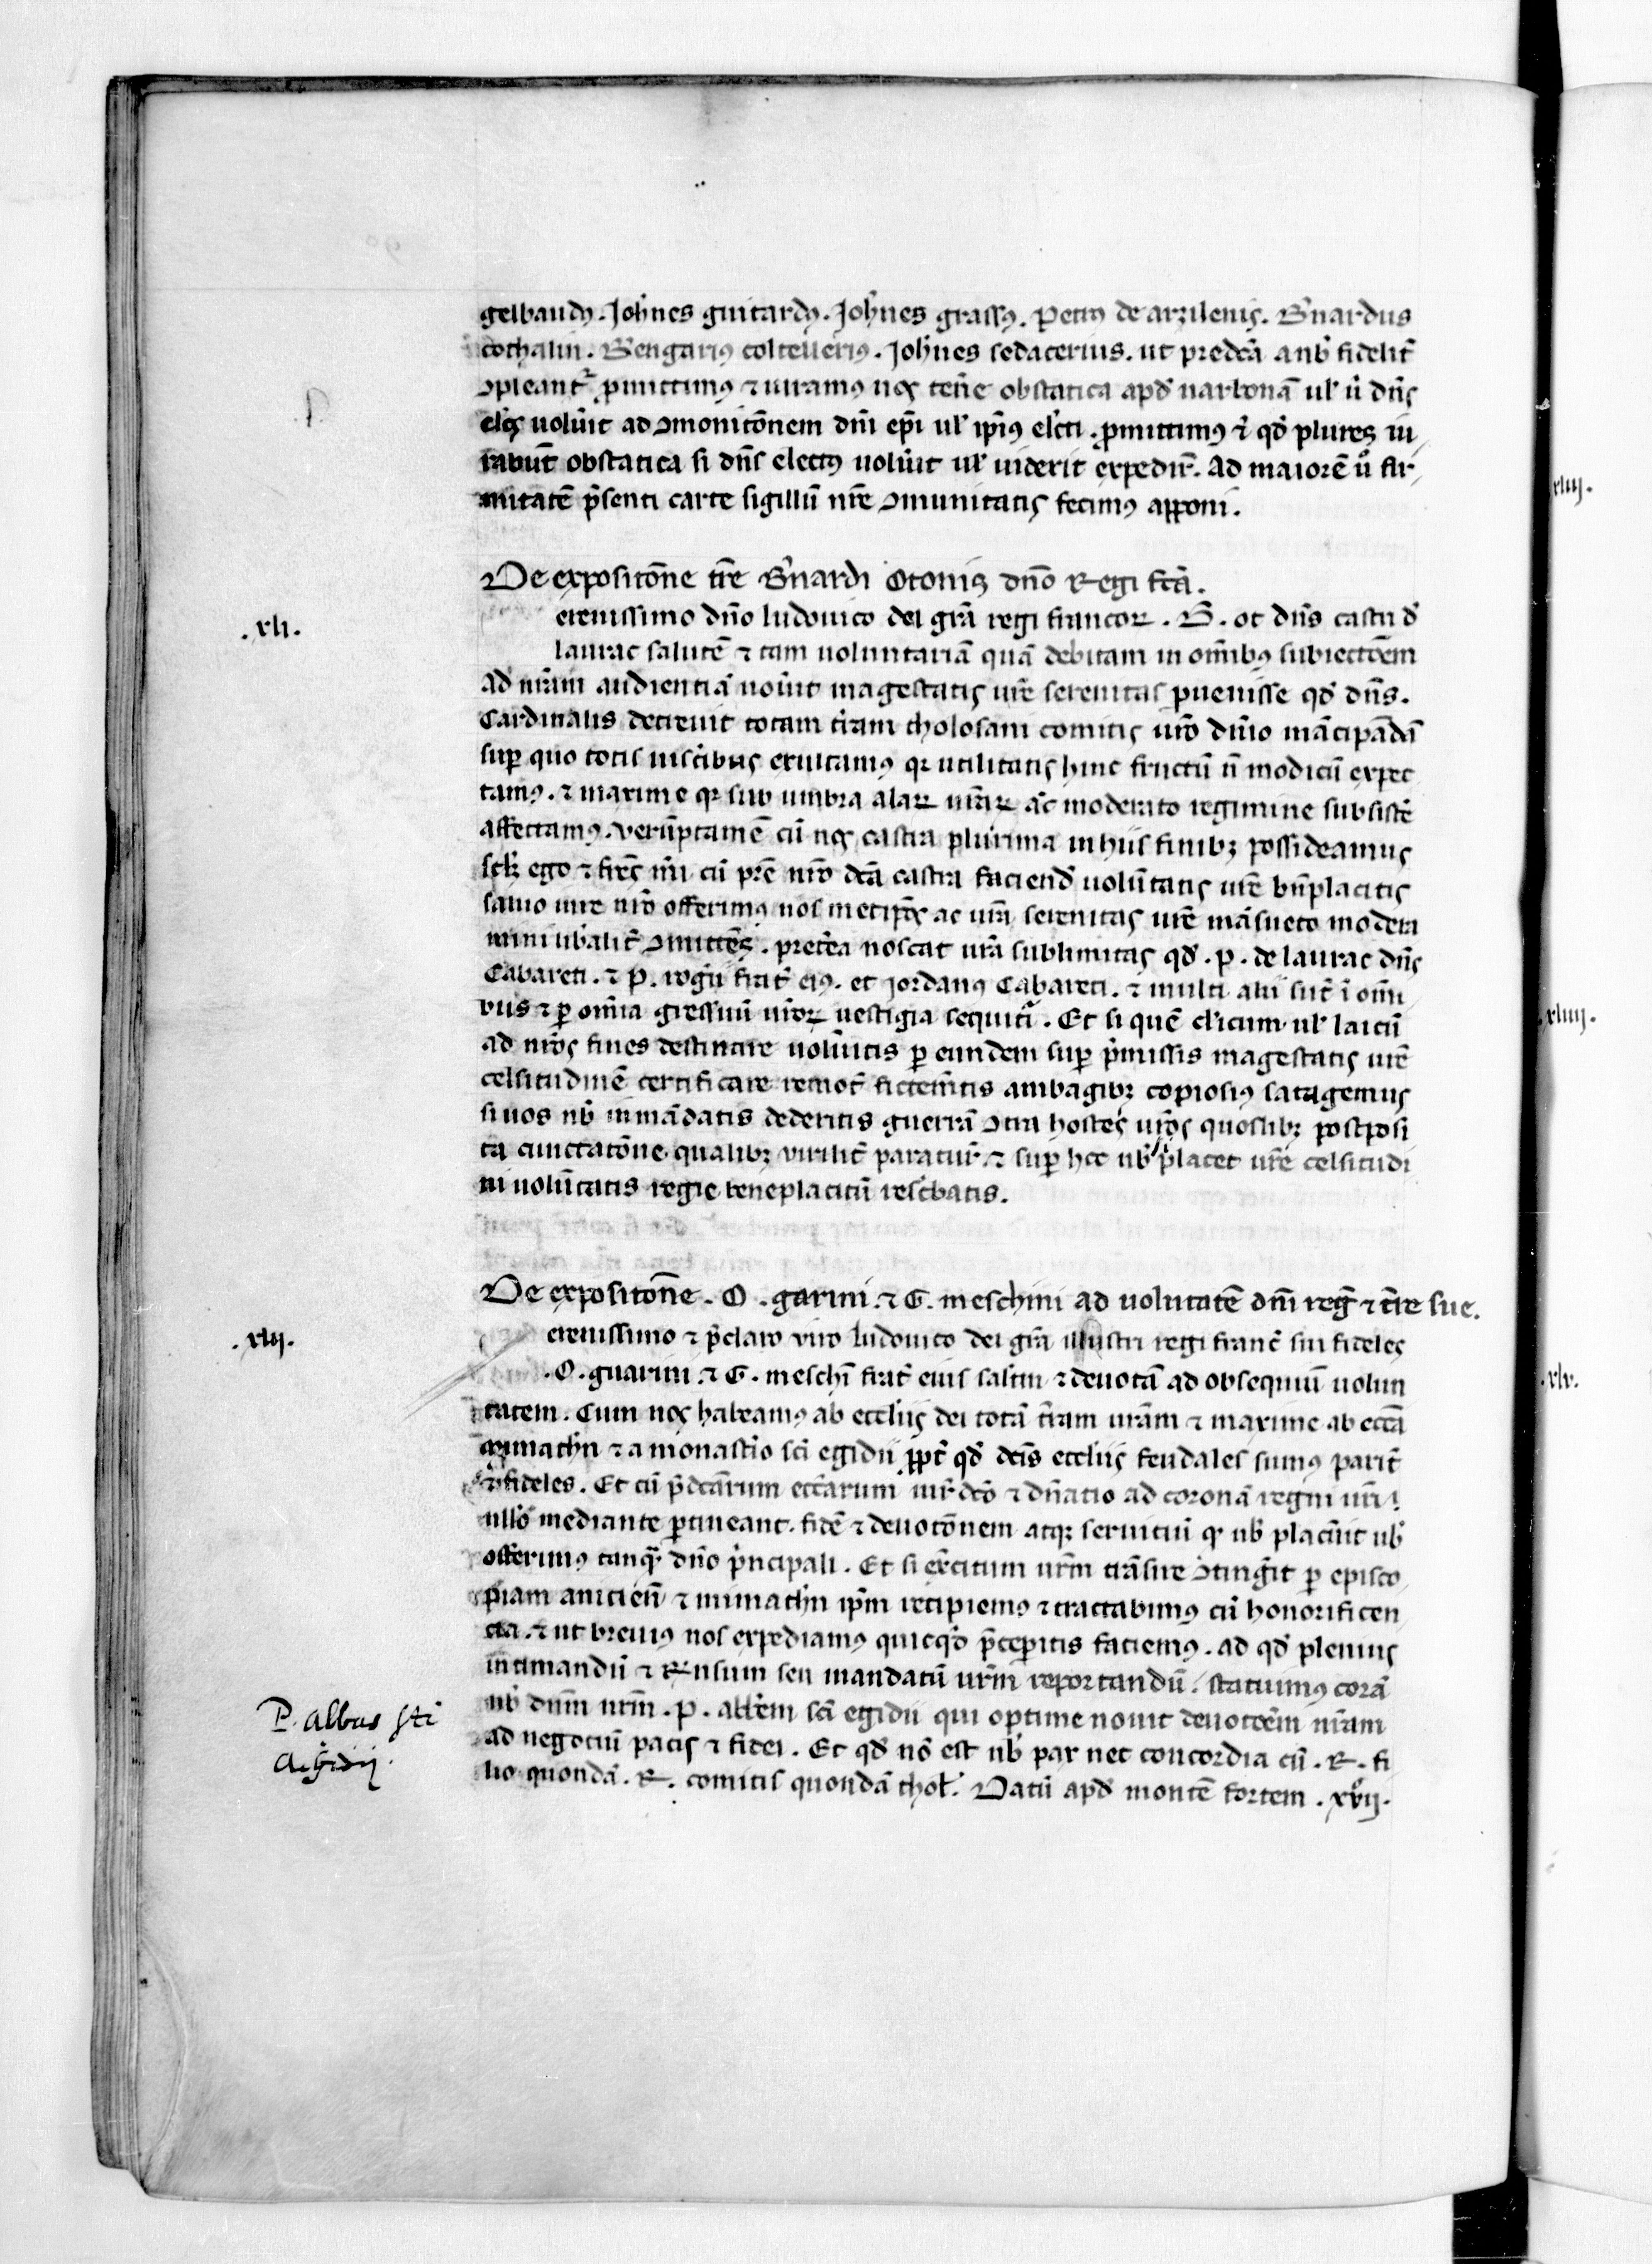 gelbaudꝰ. Joh̄nes guitardꝰ. Joh̄nes grassꝰ. Petrꝰ de arzilenis. B̄nardus
cochalin. B̄engariꝰ coltelleriꝰ. Joh̄nes sedacerius. ut predc̄a a nob̄ fidelit̄
ↄpleant᷑ ꝓmittimꝰ ⁊ iuramus nos ten̄e obstatica apd̄ narbonā ul̄ ū dn̄s
elc̄s uolūit ad ↄmonitōnem dn̄i ep̄i ul̄ ip̄iꝰ elc̄ti. ꝓmittimꝰ ⁊ qd̄ plures iu
rabūt obstatica si dn̄s electꝰ uolūit ul̄ uiderit expedir̄. Ad maiorē ū fir
mitatē p̄senti carte sigillū nr̄e ↄmunitatis fecimꝰ apponi.
De expositōne tr̄e B̄nardi Otonis dn̄o Regi fc̄ā.
.xli.
erenissimo dn̄o ludouico dei grā regi francoꝝ. B. ot dn̄s castri d̄
laurac salutē ⁊ tam uoluntariā quā debitam in om̄ibꝰ subiectōem
ad nr̄am audientiā nou̅it magestatis ur̄e serenitas ꝑuenisse qd̄ dn̄s.
Cardinalis decreuit totam tr̄am tholosani comitis ur̄o dn̄io mācipādā
suꝑ quo totis uiscibus exultamꝰ qꝛ utilitatis hinc fructū n̄ modicū expec
tamꝰ. ⁊ maxime qꝛ sub umbra alaꝝ ur̄aꝝ ac̄ moderato regimine subsistē
affectamꝰ. verūptamē cū nos castra plurima in hiis finibꝫ possideamus
scl̄ꝫ ego ⁊ fr̄es mī cū pr̄e nr̄o dc̄ā castra faciend̄ uolūtatis ur̄e bn̄placitis
saluo iure nr̄o offerimꝰ nos metip̄os ac ur̄ā serenitas ur̄e māsueto modera
mini lib̄alit̄ ↄmittēs. pretēa noscat ur̄a sublimitas qd̄. p. de laurac dn̄s
Cabareti. ⁊ P. roḡii frat̄ eiꝰ. et Jordanꝰ Cabareti. ⁊ multi alii sūt ī om̄i
bus ⁊ ꝑ om̄ia gressuū ur̄oꝝ uestigia sequit̄i. Et si quē cl̄icum ul̄ laicū
ad nr̄os fines destinare uolūitis ꝑ eundem suꝑ p̄missis magestatis ur̄e
celsitudinē certificare remot̄ ficten̄tis ambagibꝫ copiosiꝰ satagemus
si uos nob̄ in mādatis dederitis guerrā ↄtra hostes ur̄os quoslibꝫ postposi
ta cunctatōne qualibꝫ virilit̄ paratur̄. ⁊ suꝑ hec nob̄ placet ur̄e celsitudi
ni uolūtatis regie beneplacitū resc̄batis.
De expositōne. O. garini. ⁊ G. meschini ad uolūtatē dn̄i reḡ ⁊ tr̄e sue.
.xlij.
erenissimo ⁊ p̄claro viro ludouico dei grā illustri regi franc̄ sui fideles
.O. guarini. ⁊ G. meschī frat̄ eius saltm̄ ⁊ deuotā ad obsequiū uolun
tatem. Cum nos habeamꝰ ab eccl̄iis dei totā tr̄am nr̄am ⁊ maxime ab ecc̄ā
mimatn̄ ⁊ a monast̄io sc̄i egidii ꝓpt̄ qd̄ dc̄is eccl̄iis feudales sumꝰ parit̄
⁊ fideles. Et cū p̄dc̄arum ecc̄arum iur̄dco ⁊ dn̄atio ad coronā regni ur̄i
nullo mediante ꝑtineant. fidē ⁊ deuotōnem atqꝫ seruitiū qꝛ nob̄ placūit uob̄
offerimꝰ tanqꝗ dn̄o p̄ncipali. Et si ex̄citum ur̄m trāsire ↄting̅it ꝑ episco
piam aniciēn ⁊ mimatn̄ ip̄m recipiemꝰ ⁊ tractabimꝰ cū honorificen
cia. ⁊ ut breuiꝰ nos expediamꝰ quicqd̄ p̄cepitis faciemꝰ. ad qd̄ plenius
intimandū ⁊ Rn̄sum seu mandatū ur̄m reportandū. statuimꝰ corā
uob̄ dn̄m nr̄m. P. abb̄em sc̄i egidii qui optime nouit deuotōem nr̄am
P. albas sti
Aegidij.
ad negotiū pacis ⁊ fidei. Et qd̄ nō est nob̄ pax nec concordia cū. R. fi
lio quondā. R. comitis quondā thol̄. Datū apd̄ montē fortem. xvij.
xliij.
.xliiij.
.xlv.